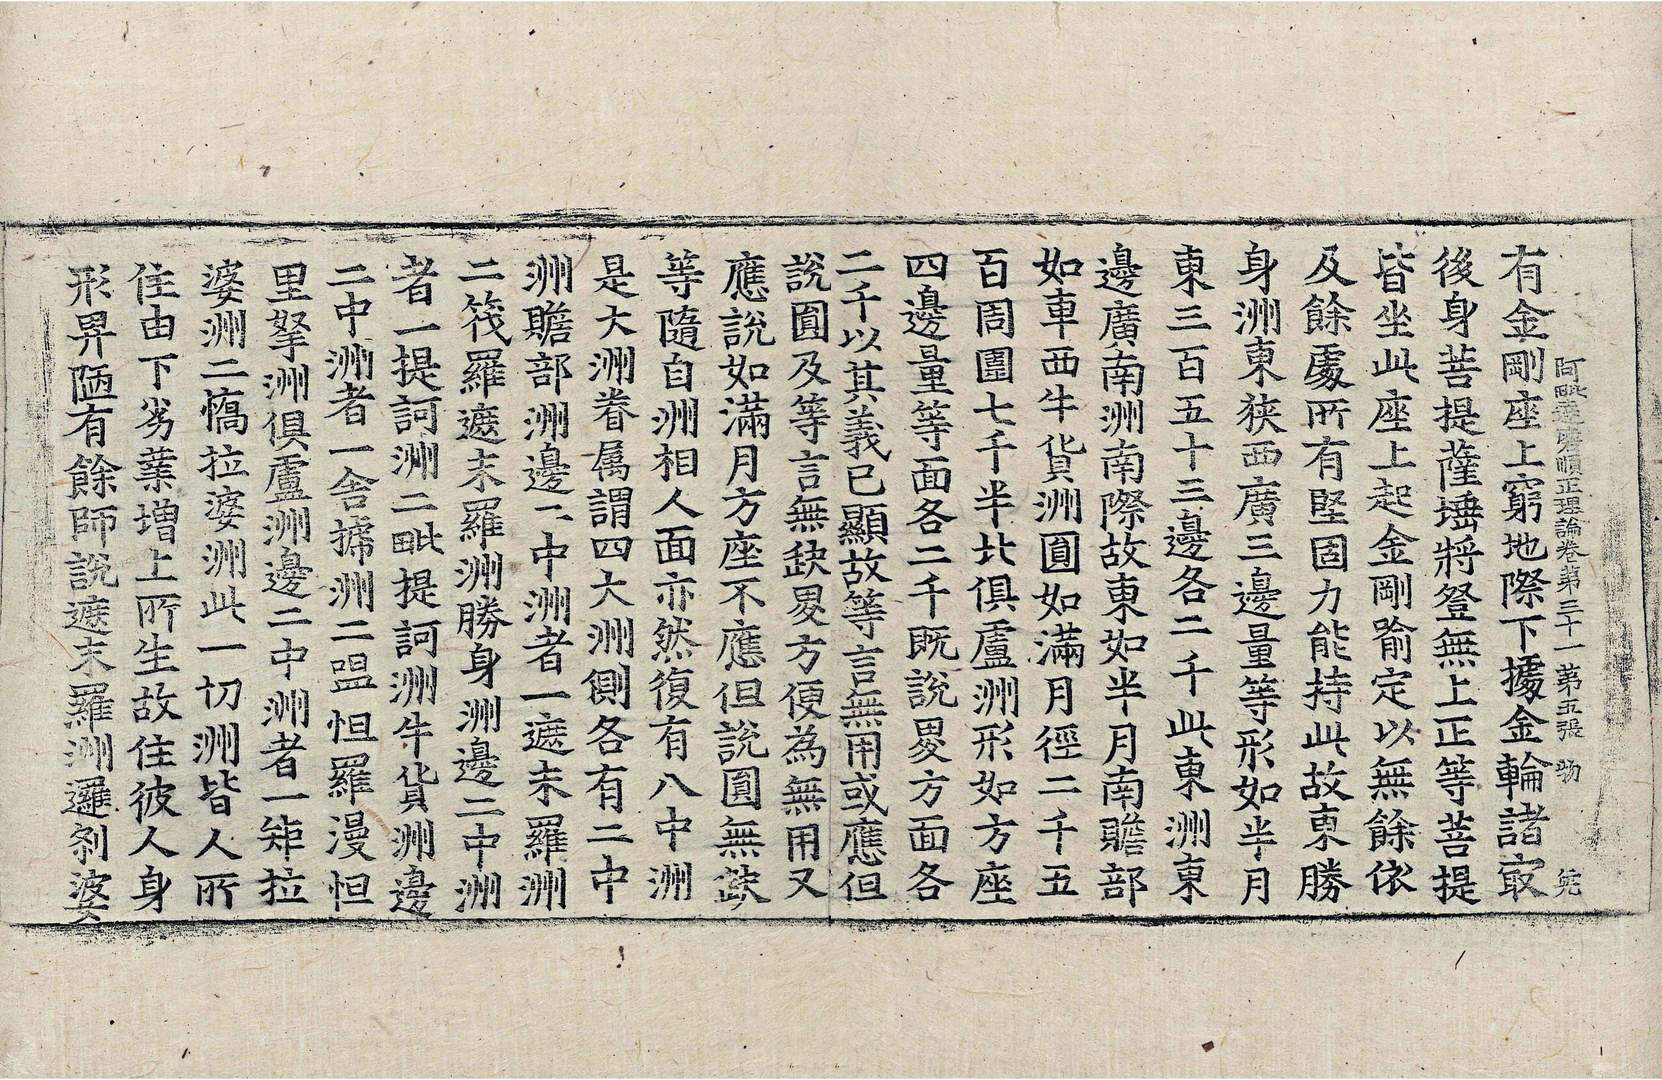 阿毗達磨順正理論卷第三十一 第五張 物
有金剛座上窮地際下據金輪諸最
後身菩提薩埵將登無上正等菩提
皆坐此座上起金剛喻定以無餘依
及餘處所有堅固力能持此故東勝
身洲東狹西廣三邊量等形如半月
東三百五十三邊各二千此東洲東
邊廣南洲南際故東如半月南贍部
如車西牛貨洲圓如滿月徑二千五
百周圍七千半北俱盧洲形如方座
四邊量等面各二千既說畟方面各
二千以其義已顯故等言無用或應但
說圓及等言無缺畟方便為無用又
應說如滿月方座不應但說圓無缺
等隨自洲相人面亦然復有八中洲
是大洲眷属謂四大洲側各有二中
洲贍部洲邊二中洲者一遮末羅洲
二筏羅遮末羅洲勝身洲邊二中洲
者一提訶洲二毗提訶洲牛貨洲邊
二中洲者一舍搋洲二嗢怛羅漫怛
里拏洲俱盧洲邊二中洲者一矩拉
婆洲二憍拉婆洲此一切洲皆人所
住由下劣業增上所生故住彼人身
形卑陋有餘師說遮末羅洲邏剎婆